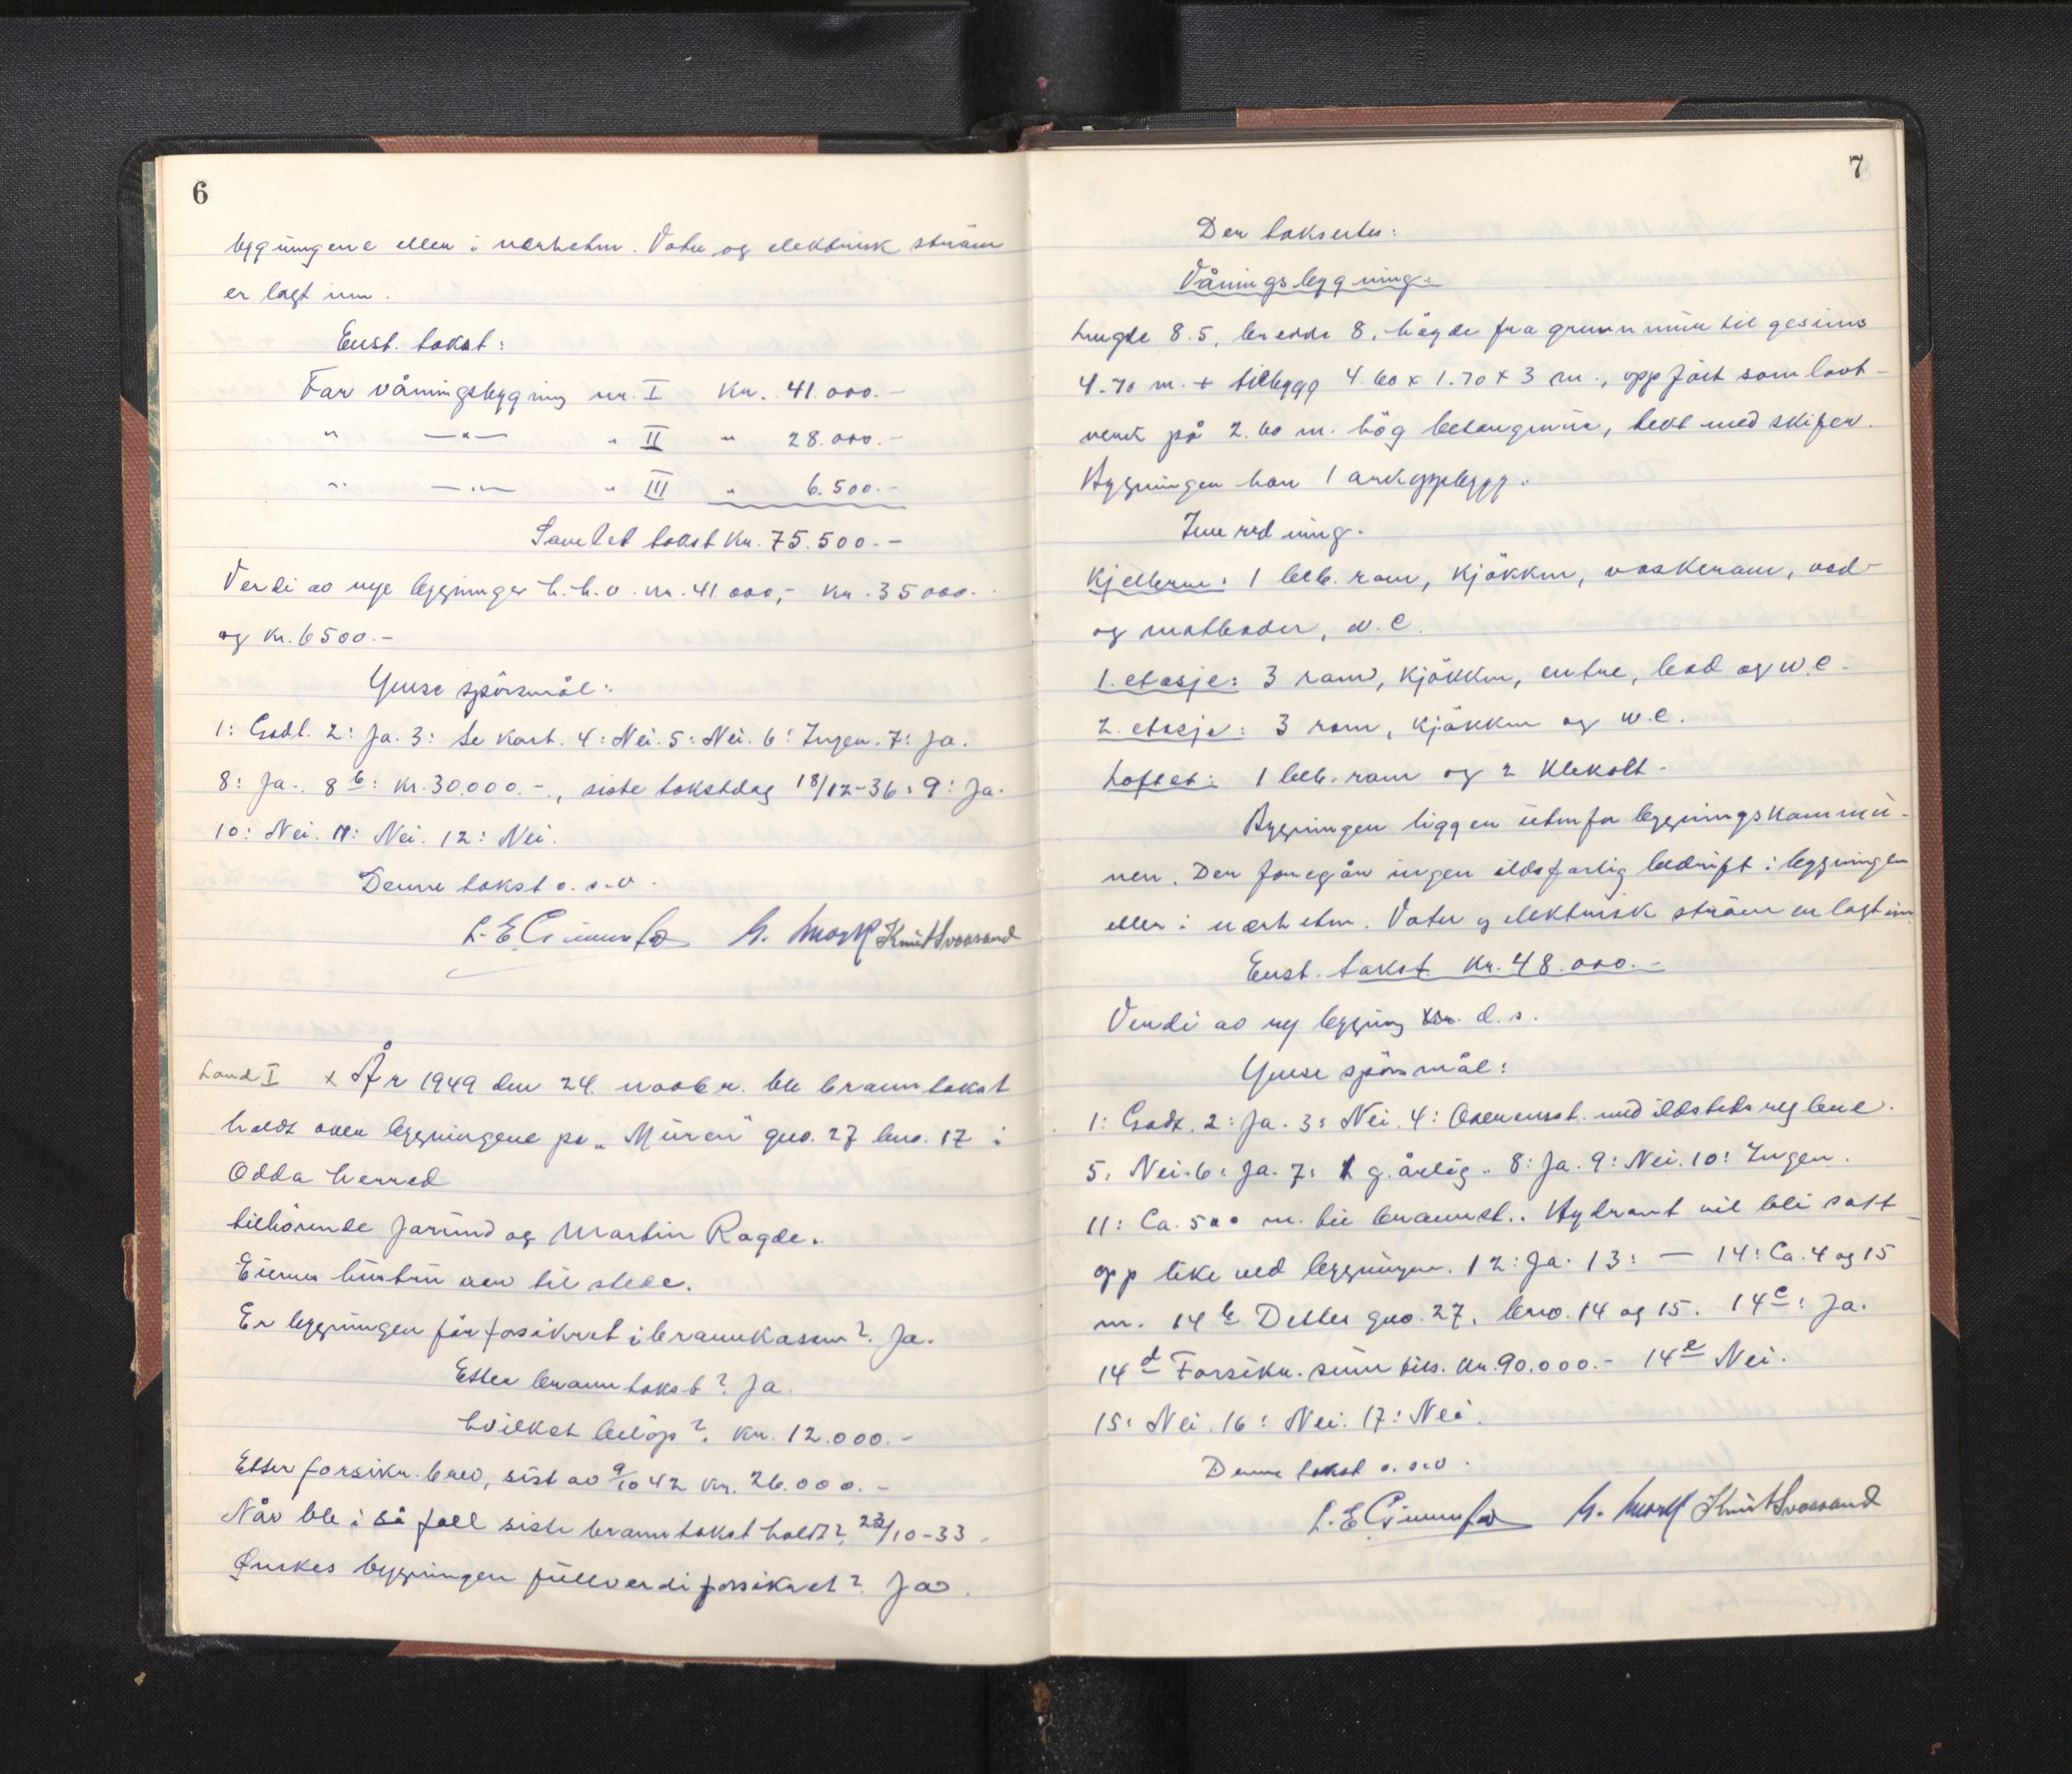 6
bygningene eller i nærheten. Vatn og elektrisk strøm
er lagt inn.
Enst. takst:
For våningsbygning nr. I Kr. 41.000.-
" —"— " II " 28.000.-
" —"— " III " 6.500.-
Samlet takst Kr. 75.500.-
Verdi av nye bygninger h.h.v. kr. 41.000,- kr. 35000.
og kr. 6500.-
Ymse spörsmål:
1: Godt. 2: Ja. 3: Se kart. 4: Nei. 5: Nei. 6: Ingen. 7: Ja.
8: Ja. 8b: Kr. 30.000.-, siste takstdag 18/12-36. 9: Ja.
10: Nei. 11: Nei. 12: Nei.
Denne takst o.s.v.
Knut Svaasand
Land I x År 1949 den 24. novbr. ble branntakst
holdt over bygningene på „Muren" gno. 27 bno. 17 i
Odda herred
tilhörende Jorund og Martin Ragde.
Eierens hustru var til stede.
Er bygningen för forsikret i brannkassen? Ja.
Etter branntakst? Ja.
Hvilket belöp? Kr. 12.000.-
Etter forsikr.brev, sist av 9/10 42 kr. 26.000.-
Når ble i så fall siste branntakst holdt? 23/10-33.
Ønskes bygningen fullverdiforsikret? Ja.
7
Der taksertes:
Våningsbygning:
Lengde 8.5, bredde 8, högde fra grunnmur til gesims
4.70 m. + tilbygg 4.60 x 1.70 x 3 m., oppfört som lavt-
verk på 2.60 m. hög betongmur, tekt med skifer.
Bygningen har 1 arkoppbygg.
Innredning.
Kjelleren: 1 beb. rom, kjökken, vaskerom, ved-
og matboder, w.c.
1. etasje: 3 rom, kjökken, entre, bad og w.c.
2. etasje: 3 rom, kjökken og w.c.
Loftet: 1 beb. rom og 2 klekott.
Bygningen ligger utenfor bygningskommu-
nen. Der foregår ingen ildsfarlig bedrift i bygningen
eller i nærheten. Vatn og elektrisk strøm er lagt inn.
Enst. takst Kr. 48.000.-
Verdi av ny bygning d.s.
Ymse spörsmål:
1: Godt. 2: Ja. 3: Nei. 4: Overensst. med ildstedsreglene.
5: Nei. 6: Ja. 7: 1 g. årlig. 8: Ja. 9: Nei. 10: Ingen.
11: Ca. 500 m. til brannst.. Hydrant vil bli satt
opp like ved bygningen. 12: Ja. 13: — 14: Ca. 4 og 15
m. 14b Dettes gno. 27, bno. 14 og 15. 14c: Ja.
14d Forsikr. sum tils. kr. 90.000.- 14e Nei.
15: Nei. 16: Nei. 17: Nei.
Denne takst o.s.v.
Knut Svaasand